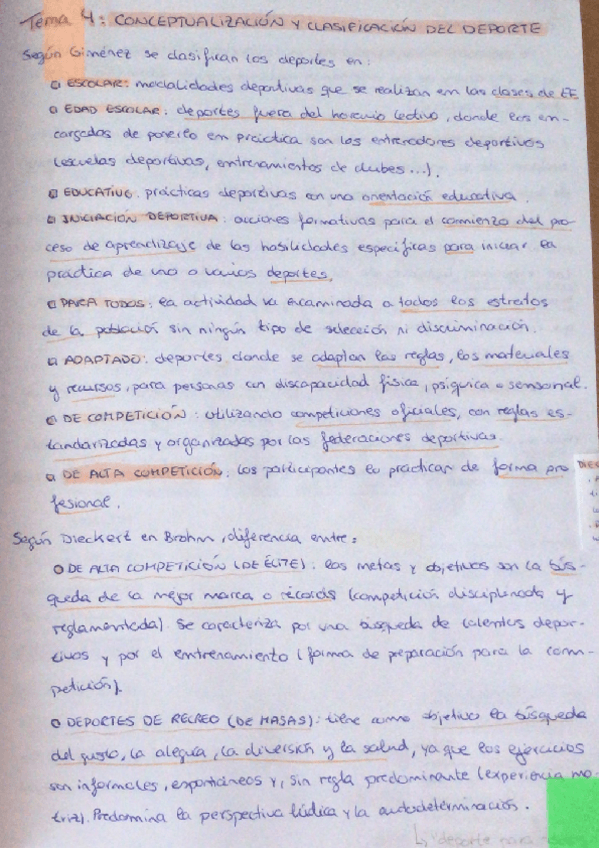 Tema 4: CONCEPTUALIZACIÓN Y CLASIFICACIÓN DEL DEPORTE
Según Giménez se clasifican los deportes en:
ESCOLAR: modalidades deportivas que se realizan en las clases de EF
EDAD ESCOLAR: deportes fuera del horario lectivo, donde los en-
cargados de ponerlo en práctica son los entrenadores deportivos
(escuelas deportivas, entrenamientos de clubes...).
EDUCATIVO: prácticas deportivas con una orientación educativa.
INICIACIÓN DEPORTIVA: acciones formativas para el comienzo del pro
ceso de aprendizaje de las habilidades específicas para iniciar la
práctica de uno o varios deportes.
PARA TODOS: la actividad va encaminada a todos los estratos
de la población sin ningún tipo de selección ni discriminación.
ADAPTADO: deportes donde se adaptan las reglas, los materiales
y recursos, para personas con discapacidad física, psíquica o sensorial.
DE COMPETICIÓN: utilizando competiciones oficiales, con reglas es-
tandarizadas y organizadas por las federaciones deportivas.
DE ALTA COMPETICIÓN: los participantes lo practican de forma pro
fesional.
Según Dieckert en Brohm, diferencia entre:
DE ALTA COMPETICIÓN (DE ÉLITE): las metas y objetivos son la bús-
queda de la mejor marca o récords (competición disciplinada y
reglamentada). Se caracteriza por una búsqueda de talentos depor-
tivos y por el entrenamiento (forma de preparación para la com-
petición).
DEPORTES DE RECREO (DE MASAS): tiene como objetivo la búsqueda
del gusto, la alegría, la diversión y la salud, ya que los ejercicios
son informales, espontáneos y, sin regla predominante (experiencia mo-
triz). Predomina la perspectiva lúdica y la autodeterminación.
"deporte para